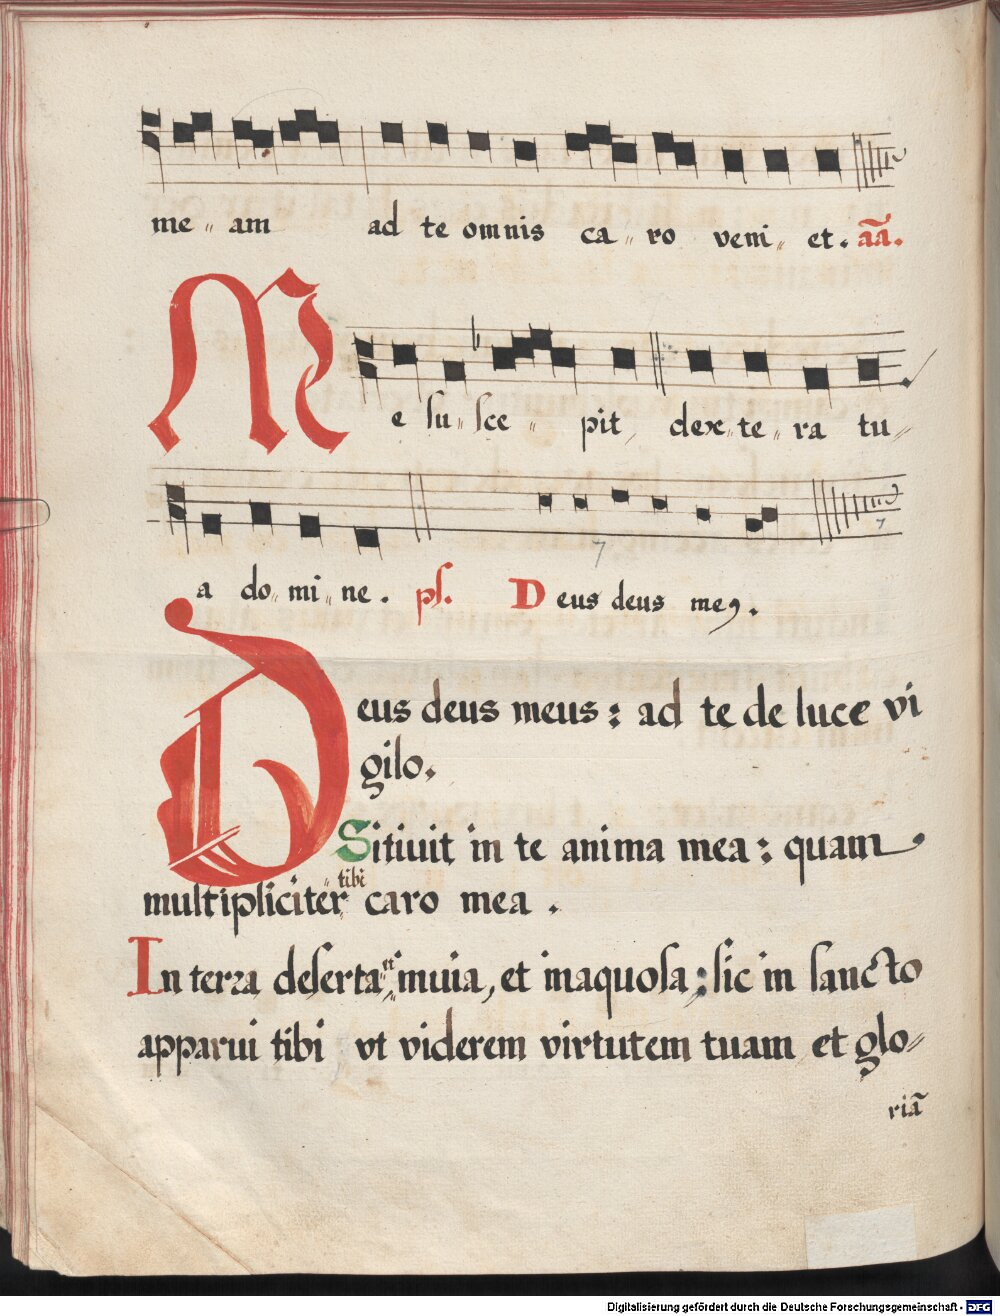 me „ am ad te omnis ca „ ro veni „ et. aã.
Me su „ sce „ pit dex „ te „ ra tu „
a do „ mi „ ne. ps. Deus deus meꝰ.
Deus deus meus : ad te de luce vi
gilo.
Sitiuit in te anima mea : quam
tibi
multipliciter caro mea .
In terra deserta et imuia, et inaquosa : sic in sancto
apparui tibi vt viderem virtutem tuam et glo „
riã
Digitalisierung gefördert durch die Deutsche Forschungsgemeinschaft - DFG